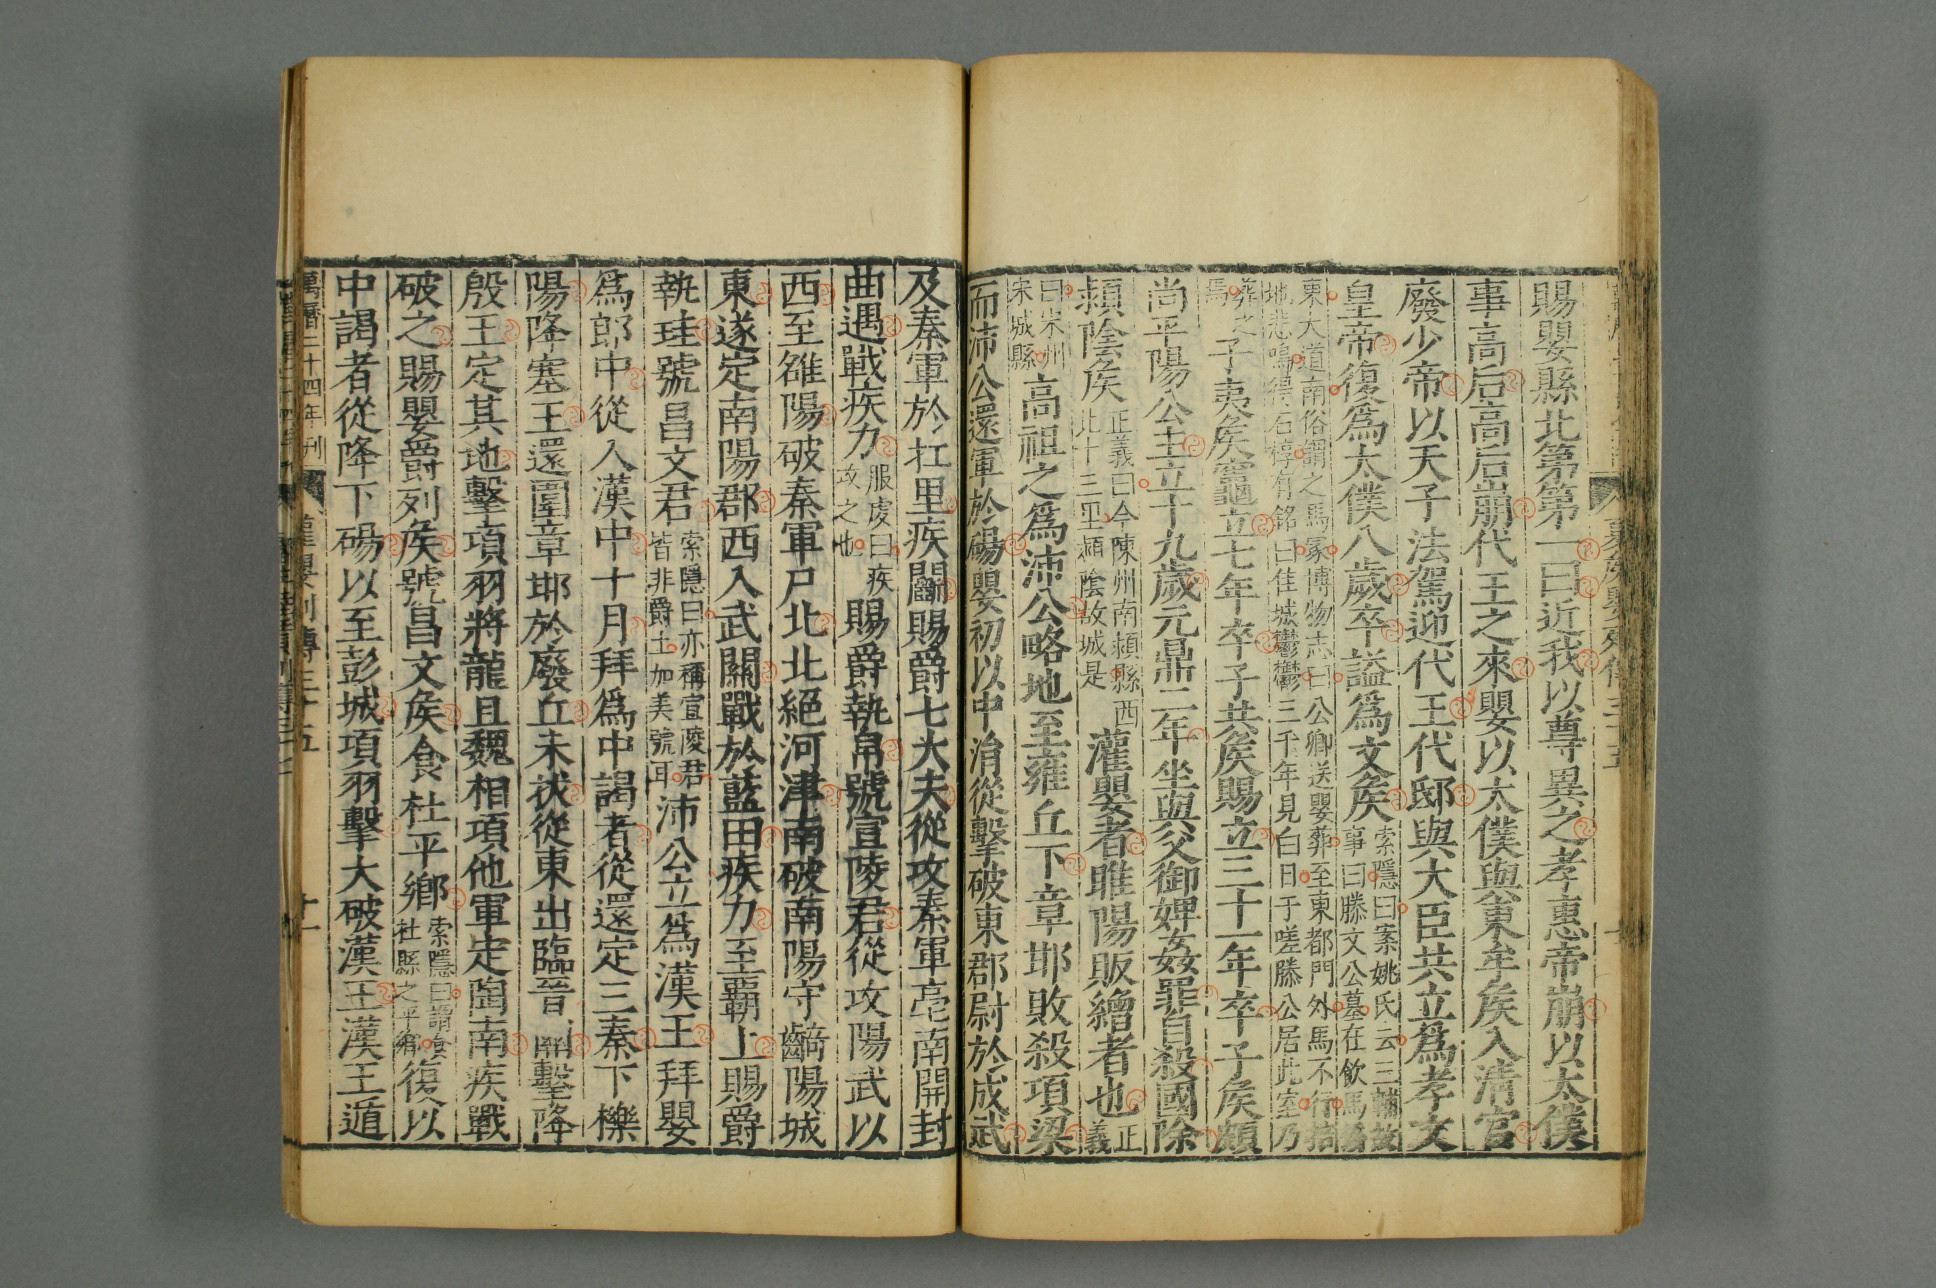 賜嬰縣北第第一曰近我以尊異之孝惠帝崩以太僕
事高后高后崩代王之來嬰以太僕與東牟侯入清宫
廢少帝以天子法駕迎代王代邸與大臣共立爲孝文
皇帝復爲太僕八歲卒謚爲文侯索隱曰案姚氏云三輔故事曰滕文公墓在飲馬橋
東大道南俗謂之馬冢博物志曰公卿送嬰葬至東都門外馬不行掊地悲鳴得石椁有銘曰佳城鬱鬱三千年見白日于嗟滕公居此室乃
葬之焉子夷侯竈立七年卒子共侯賜立三十一年卒子侯頗
尚平陽公主立十九歲元鼎二年坐與父御婢姦罪自殺國除
潁陰侯正義曰今陳州南潁縣西北十三里潁陰故城是灌嬰者睢陽販繒者也正義
曰宋州宋城縣高祖之爲沛公略地至雍丘下章邯敗殺項梁
而沛公還軍於碭嬰初以中涓從擊破東郡尉於成武
及秦軍於扛里疾鬭賜爵七大夫從攻秦軍亳南開封
曲遇戰疾力服虔曰疾攻之也賜爵執帛號宣陵君從攻陽武以
西至雒陽破秦軍尸北北絕河津南破南陽守齮陽城
東遂定南陽郡西入武關戰於藍田疾力至霸上賜爵
執珪號昌文君索隱曰亦稱宣陵君皆非爵土加美號耳沛公立爲漢王拜嬰
爲郎中從入漢中十月拜爲中謁者從還定三秦下櫟
陽降塞王還圍章邯於廢丘未拔從東出臨晉關擊降
殷王定其地擊項羽將龍且魏相項他軍定陶南疾戰
破之賜嬰爵列侯號昌文侯食杜平鄉索隱曰謂食杜縣之平鄉復以
中謁者從降下碭以至彭城項羽擊大破漢王漢王遁
萬曆二十四年刊 灌嬰列傳三十五 十一